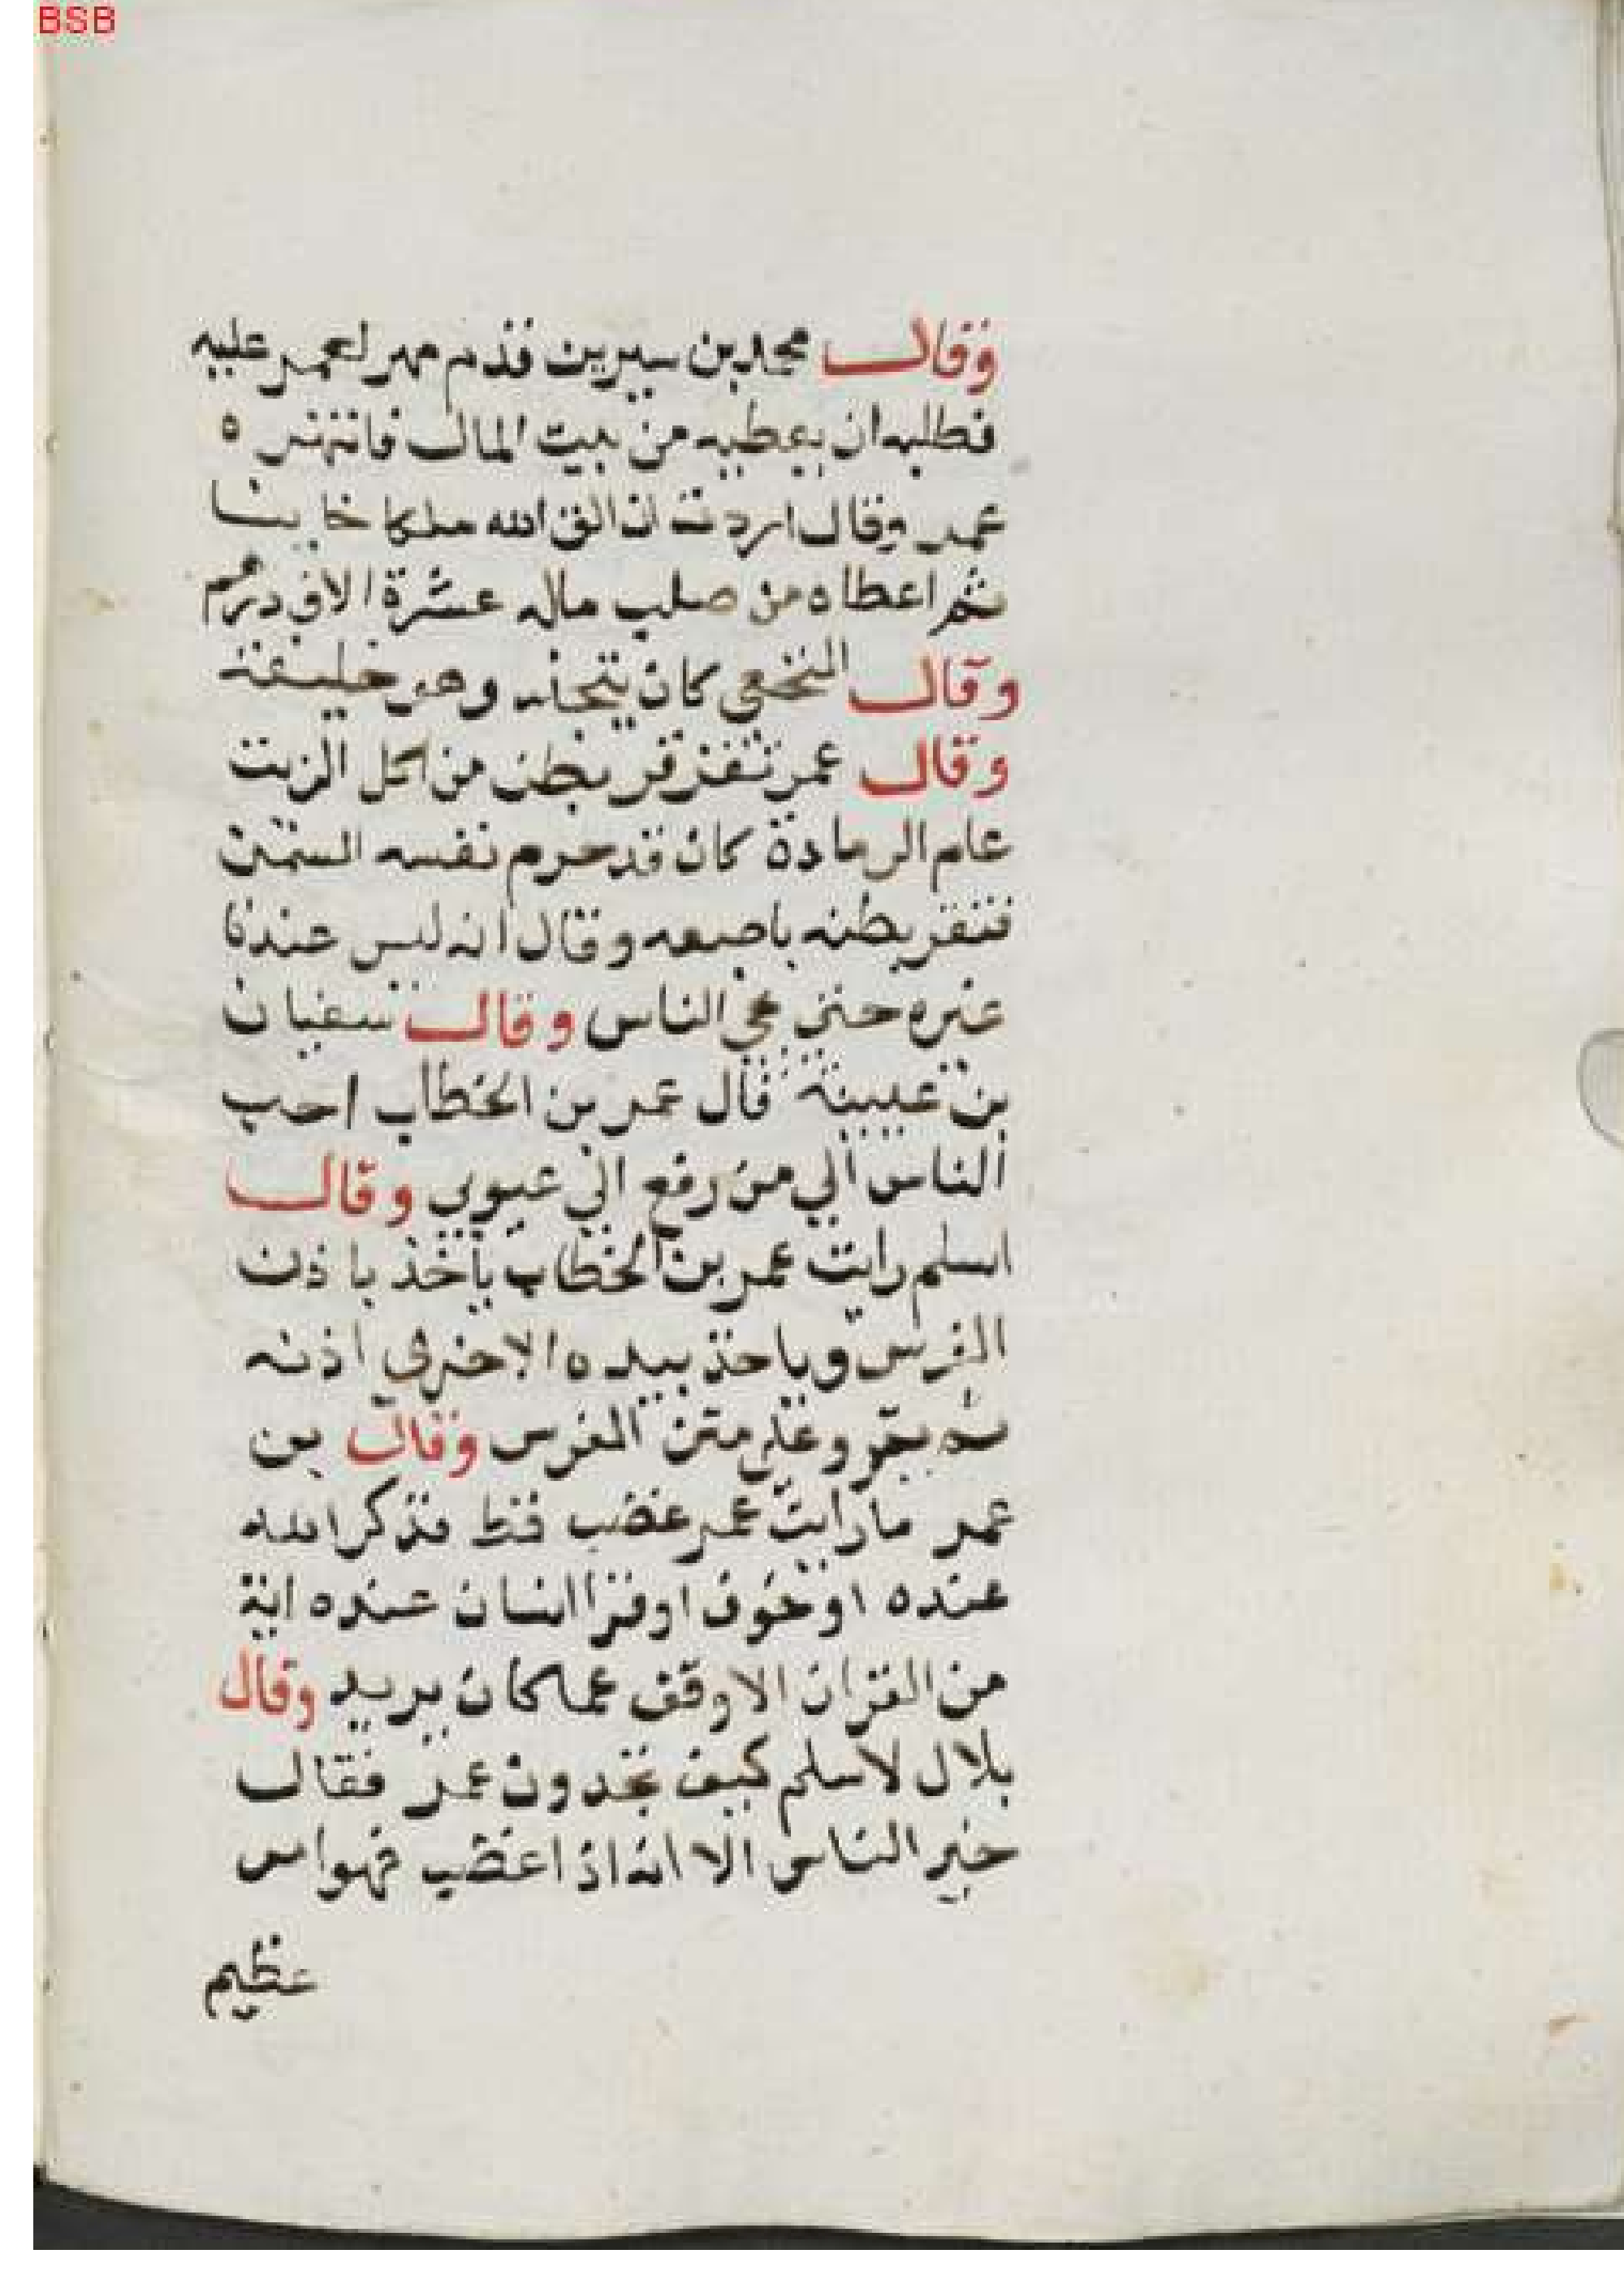 BSB
وقال محمد بن سيرين قدم صهر لعمر عليه
فطلبه ان يعطيه من بيت المال فانتهره
عمر وقال اردت ان القى الله ملكا خاينا
ثم اعطاه من صلب ماله عشرة الاف درهم
وقال النخعي كان يتجر وهو خليفة
وقال عمر تقرقر بطن من اكل الزيت
عام الرمادة كان قد حرم نفسه السمن
فنقر بطنه باصبعه وقال انه ليس عندنا
غيره حتى يحي الناس وقال سفيان
بن عيينة قال عمر بن الخطاب احب
الناس الي من رفع الي عيوبي وقال
اسلم رايت عمر بن الخطاب يأخذ باذن
الفرس وياخذ بيده الاخرى اذنه
ثم ينزو على متن الفرس وقال بن
عمر ما رايت عمر غضب قط فذكر الله
عنده او خوف او قرا انسان عنده اية
من القران الا وقف عما كان يريد وقال
بلال لاسلم كيف تجدون عمر فقال
خير الناس الا انه اذا غضب فهو امر
عظيم